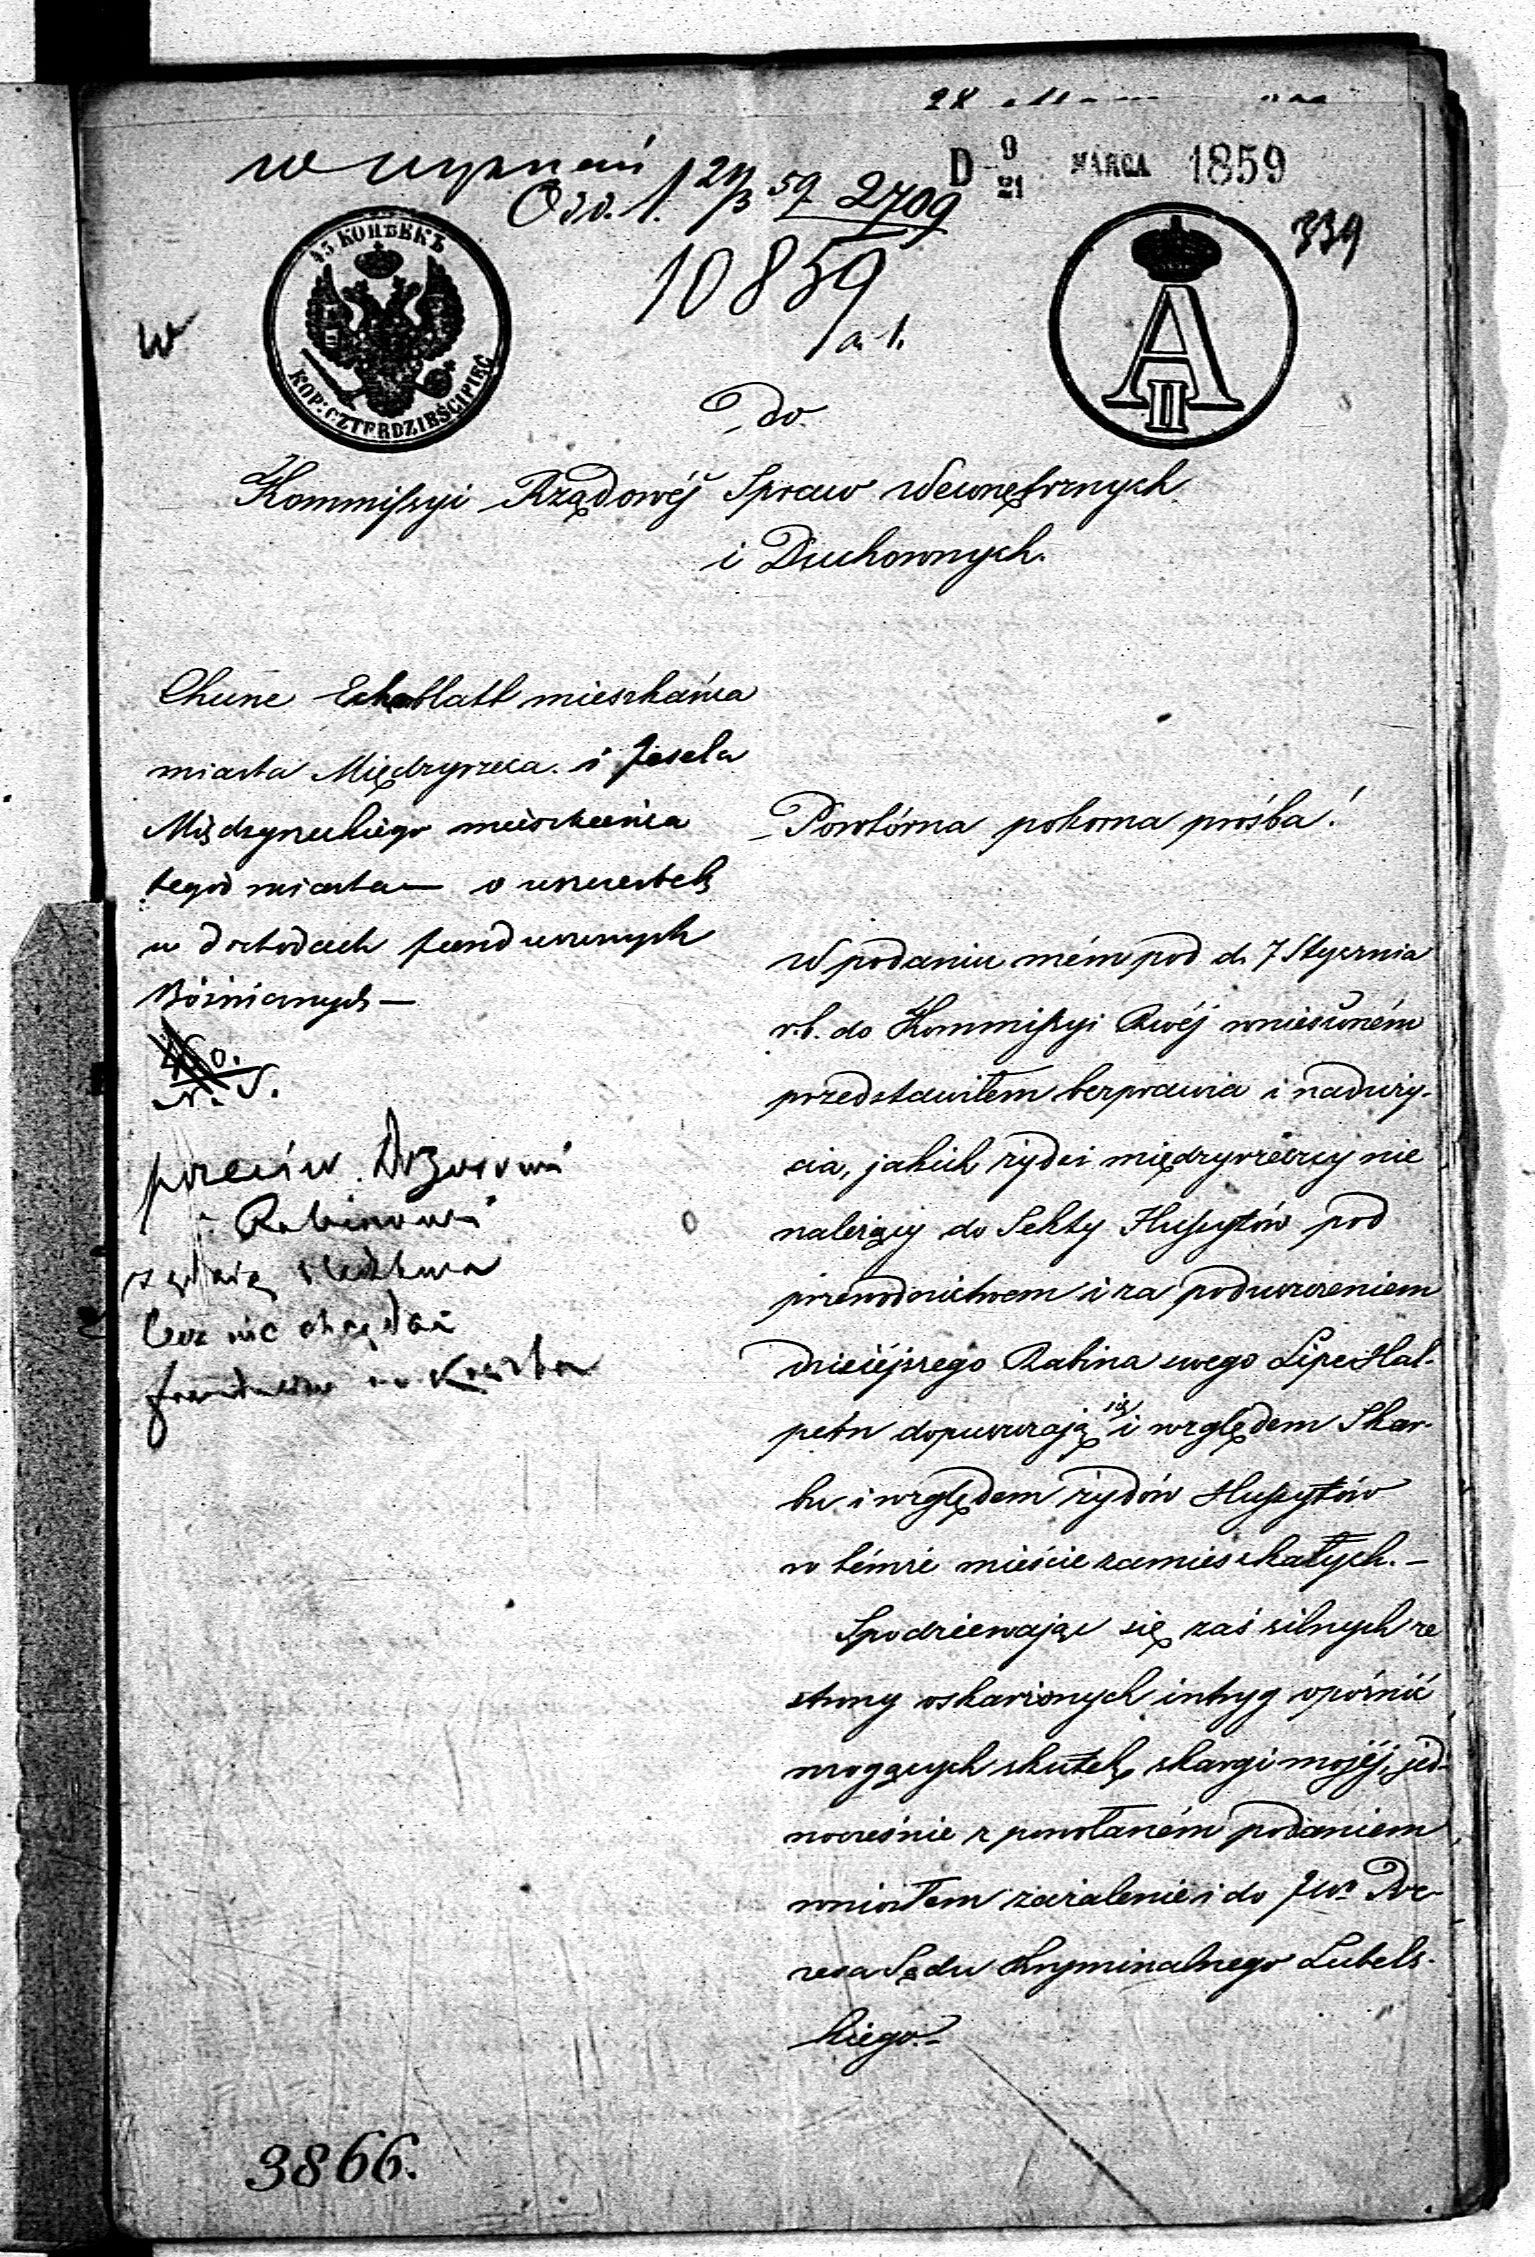 w wyznań
D 9/21 MARCA 1859
Odd. 1. 21/3 59. 2709
339
10859
a. 1.
45 КОПѢЕКЪ
KOP: CZTERDZIEŚCI PIĘĆ
A II
w
Do
Kommissyi Rządowéj Spraw Wewnętrznych
i Duchownych.
Chune Ekeblatt mieszkańca
miasta Międzyrzeca. i Josela
Międzyreckiego mieszkańca
tegoż miasta — o uszczerbek
w dochodach funduszowych
Bóżnicznych —
przeciw Dozorowi
i Rabinowi
śledztwa
lecz nie chcą dać
funduszów na koszta
Powtórna pokorna prośba!
W podaniu mém pod d. 7 Stycznia
r.b. do Kommissyi Rwéj wniesioném
przedstawiłem bezprawia i naduży-
cia, jakich żydzi międzyrzeczcy nie
należący do Sekty Hussytów pod
przewodnictwem i za poduszczeniem
dzisiéjszego Rabina swego Lipe Hal-
petn dopuszczają się i względem Skar-
bu i względem żydów Hussytów
w témże mieście zamieszkałych. —
Spodziewając się zaś silnych ze
strony oskarżonych intryg opóźnić
mogących skutek skargi mojéj, jed-
nocześnie z powołaném podaniem
wniosłem zażalenie i do JWo Pre-
zesa Sądu Kryminalnego Lubels-
kiego. —
3866.